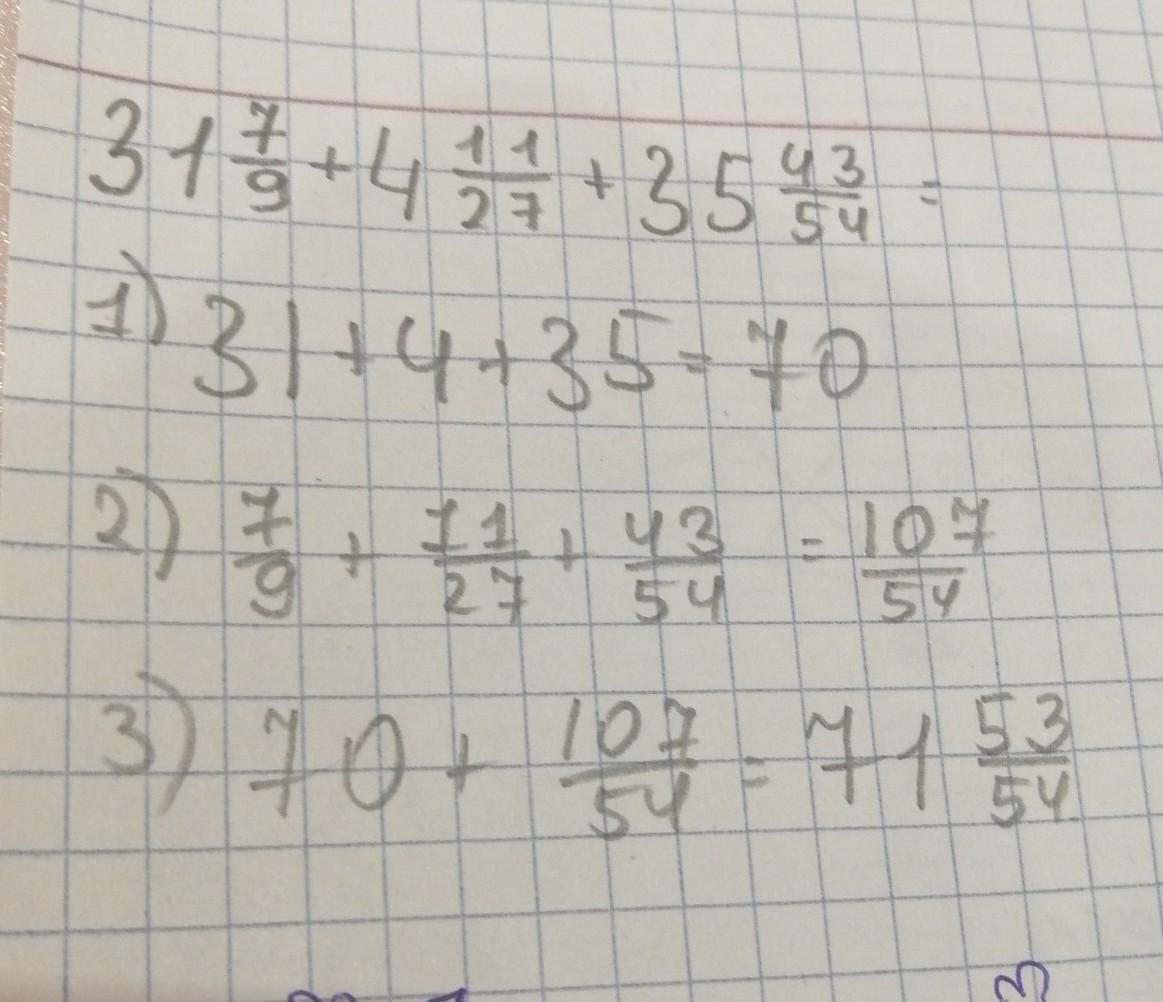 31 7/9 + 4 11/27 + 35 43/54 =
1) 31 + 4 + 35 = 70
2) 7/9 + 11/27 + 43/54 = 107/54
3) 70 + 107/54 = 71 53/54